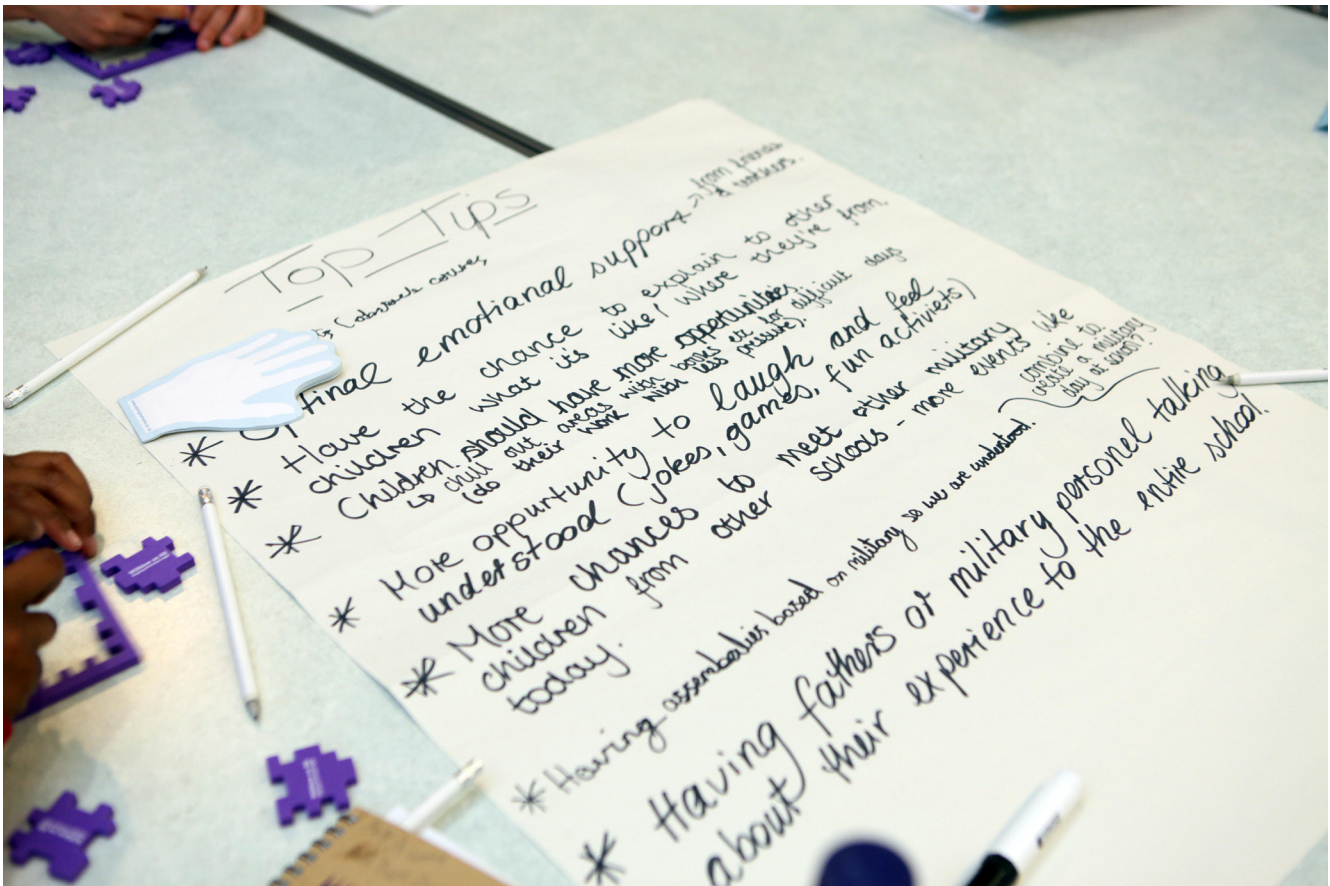 Top Tips
* Optinal emotianal support → from friends
& teachers.
* Have the chance to explain to other
children what it's like/where they're from.
* Children should have more oppertunities
↳ chill out areas with books etc for difficult days
(do their work with less pressure).
* More oppurtunity to laugh and feel
understood (jokes, games, fun activiets)
* More chances to meet other military
children from other schools - more events like
today.
combine to
create a military
day at school?
* Having assembalies based on military so we are understood.
* Having fathers or military personel talking
about their experience to the entire school.